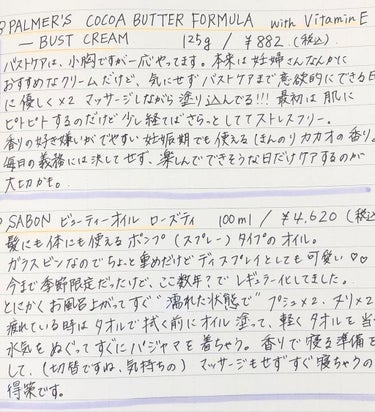 PALMER'S COCOA BUTTER FORMULA with Vitamin E
— BUST CREAM 125g / ¥882 (税込)
バストケアは、小胸ですが一応やってます。本来は妊婦さんなんかに
おすすめなクリームだけど、気にせずバストケアまで意欲的にできる日
に優しく×2 マッサージしながら塗り込んでる!!! 最初は肌に
ピトピトするのだけど少し経てばさらっとしててストレスフリー。
香りの好き嫌いがでやすい妊娠期でも使えるほんのりカカオの香り。
毎日の義務には決してせず、楽しんでできそうな日だけケアするのが
大切かも。
SABON ビューティーオイル ローズティ 100ml / ¥4.620 (税込
髪にも体にも使えるポンプ(スプレー)タイプのオイル。
ガラスビンなのでちょっと重めだけどディスプレイとしても可愛い♡♡
今まで季節限定だったけど、ここ数年?でレギュラー化してました。
とにかくお風呂上がってすぐ"濡れた状態で"プシュ×2、ヌリ×2
疲れている時はタオルで拭く前にオイル塗って、軽くタオルを当
水気をぬぐってすぐにパジャマを着ちゃう。香りで寝る準備を
して、(切替ですね、気持ちの) マッサージもせずすぐ寝ちゃうの
得策です。